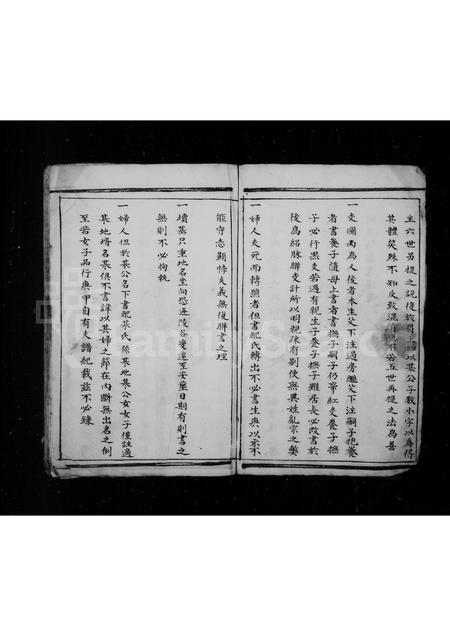 主六世另提之說後於房上註以某公子數小字以為得
其體矣殊不知反致混不若五世再提之法為善
一支圖內為人後者本生父下注過房繼父下注嗣子抱養
者書養子隨母上書者書撫子嗣子仍筆紅支養子撫
子必行黑支若遇有親生子養子撫子雖居長必改書於
後為紹脉聯支計所以明親疎有別使無異姓亂宗之獘
一婦人夫死而轉醮者但書配氏轉出不必書生與以示不
能守志顯悖夫義無復聯書之理
一墳墓只重地名坐向恐近陵谷變遷至安塟日期有則書之
無則不必拘執
一婦人但於某公名下書配某氏係某地某公女女子僅註適
某地壻名某俱不書諱以其婦之節在內斷無出名之例
至若女子品行庚甲自有夫譜紀載茲不必錄